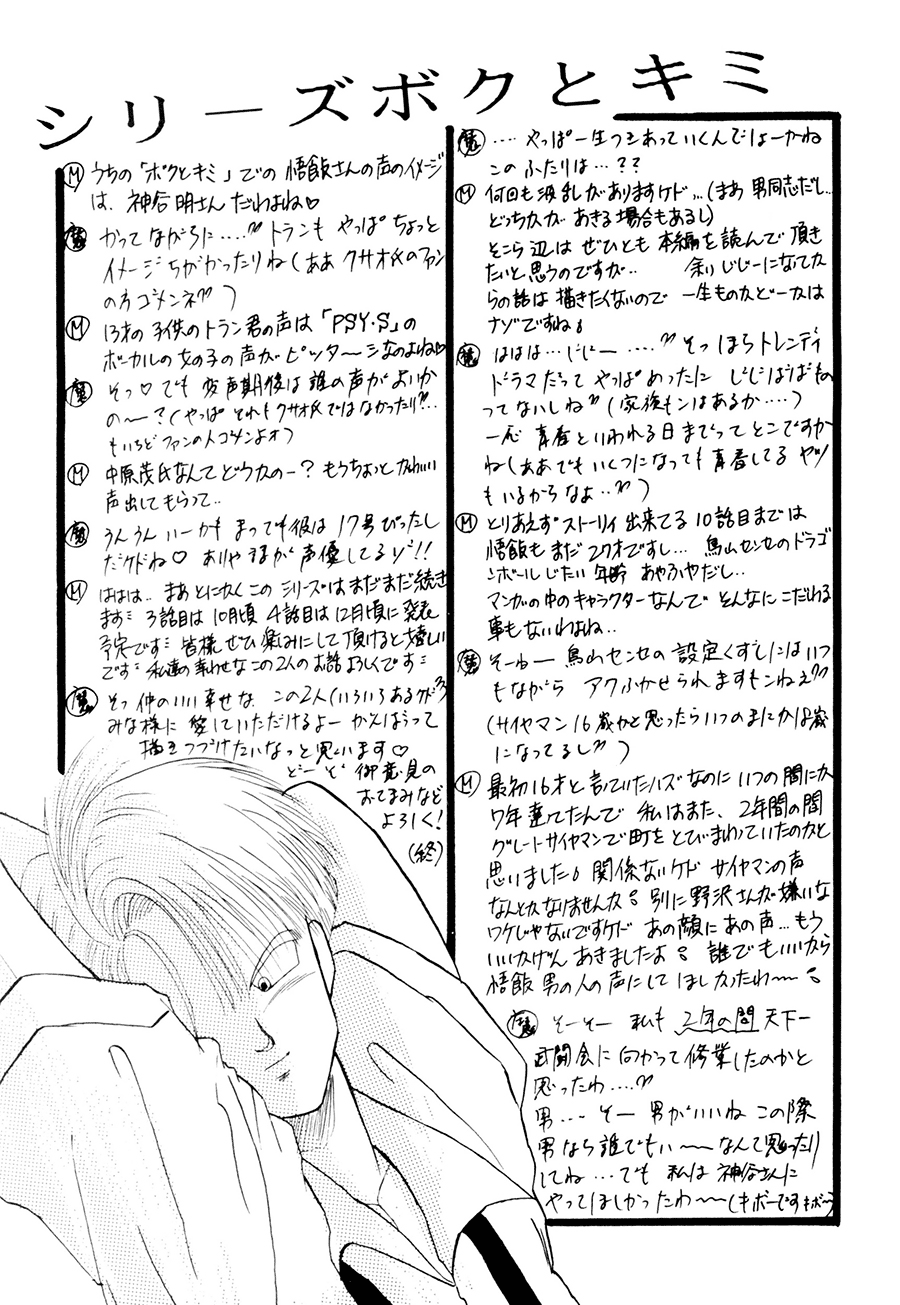 シリーズボクとキミ
魔 ‥‥やっぱ一生つきあっていくんでしょーかね
このふたりは…??
M 何回も波乱がありますケド…(まあ男同志だし…
どっちかが あきる場合もあるし)
そこら辺は ぜひとも 本編を読んで 頂き
たいと思うのですが‥ 余りじじーになってか
らの話は描きたくないので 一生ものかどーかは
ナゾですね。
魔 ははは…じじー‥‥〃 そっほらトレンディ
ドラマだって やっぱめったに じじばばもの
ってないしね〃(家族もんはあるか‥‥)
一応 青春といわれる日までってとこですか
ね(ああでも いくつになっても 青春してる ヤツ
もいるからなよ‥〃)
M とりあえず ストーリィ 出来てる 10話目までは
悟飯も まだ 27才ですし… 鳥山センセのドラゴ
ンボールじたい 年齢 あやふやだし‥
マンガの中のキャラクターなんで そんなにこだわる
事もないわよね‥
魔 そーねー 鳥山センセの 設定くずしにはいつ
もながら アワふかせられますもんねぇ〃
(サイヤマン 16歳かと思ったらいつのまにか18歳
になってるし〃)
M 最初16才と言っていたハズなのに いつの間にか
7年達ってたんで 私はまた、2年間の間
グレートサイヤマンで町をとびまわっていたのかと
思いました。関係ないケド サイヤマンの声
なんとかなりませんか。別に野沢さんが嫌いな
ワケじゃないですケド あの顔にあの声…もう
いいかげん あきましたよ。誰でもいいから
悟飯 男の人の声にして ほしかったわ〜。
魔 そーそー 私も 2年の間 天下一
武闘会に向かって修業したのかと
思ったわ‥‥〃
男‥‥ そー 男がいいね この際
男なら誰でもい〜〜なんて思ったり
してね…でも 私は神谷さんに
やってほしかったわ〜(キボーですキボ〜)
M うちの「ボクとキミ」での 悟飯さんの声のイメージ
は、神谷明さん だわよね♡
魔 かってながらに‥‥〃 トランも やっぱちょっと
イメージちがかったりね(ああ クサオ氏のファン
の方ゴメンネ〃)
M 13才の子供のトラン君の声は「PSY・S」の
ボーカルの女の子の声がピッタ〜シなのよね♡
魔 そっ♡ でも 変声期後は誰の声がよいか
の〜?(やっぱ それもクサオ氏ではなかったり〃‥
もいちどファンの人ゴメンよオ)
M 中原茂氏なんてどうかの〜? もうちょっと かわいい
声出してもらって‥
魔 うんうん いーかも まっても彼は 17号ぴったし
だケドね♡ ありゃ まるが声優してるゾ!!
M ははは‥ まあとにかくこの シリーズはまだまだ続き
ます 3話目は 10月頃 4話目は12月頃に発表
予定です 皆様ぜひ楽みにして頂けると嬉しい
です 私達の幸わせなこの2人のお話よろしくです
魔 そっ仲のいい幸せな この2人(いろいろあるケド)
みな様に 愛していただけるよー がんばって
描きつづけたいなっと思います♡
どーぞ 御意見の
おてまみなど
よろしく!
(終)